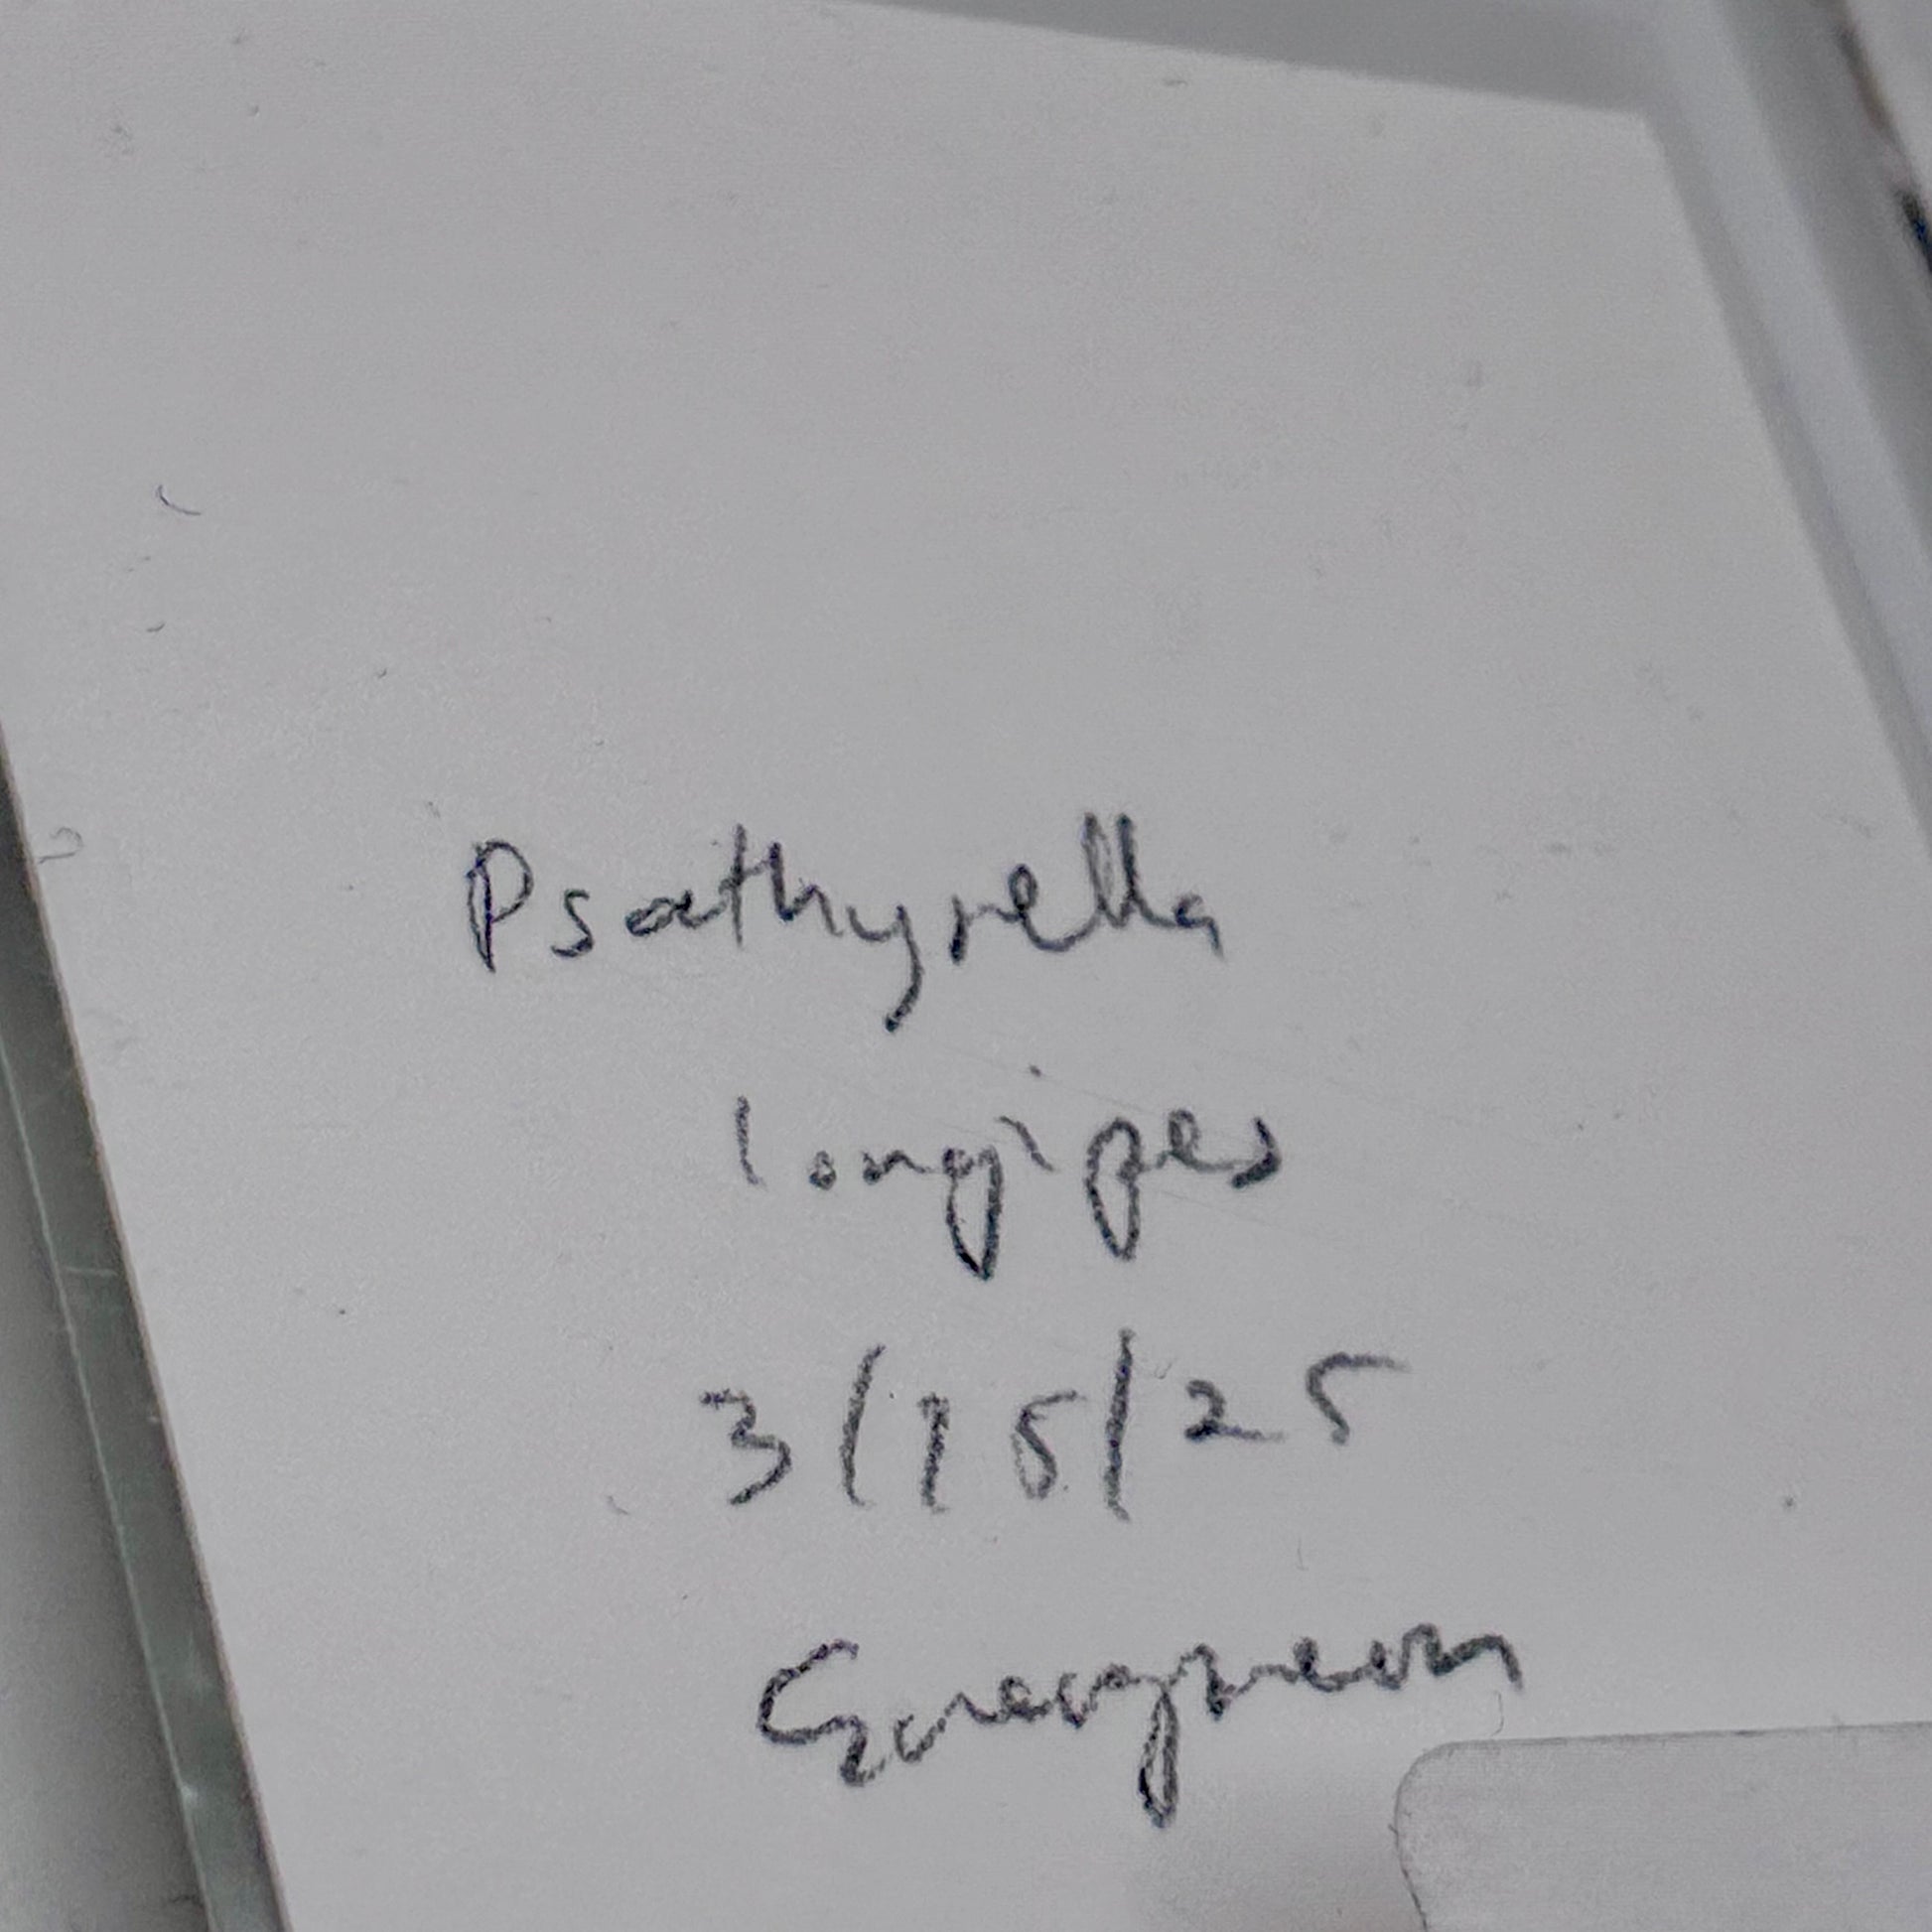 Psathyrella
longipes
3/15/25